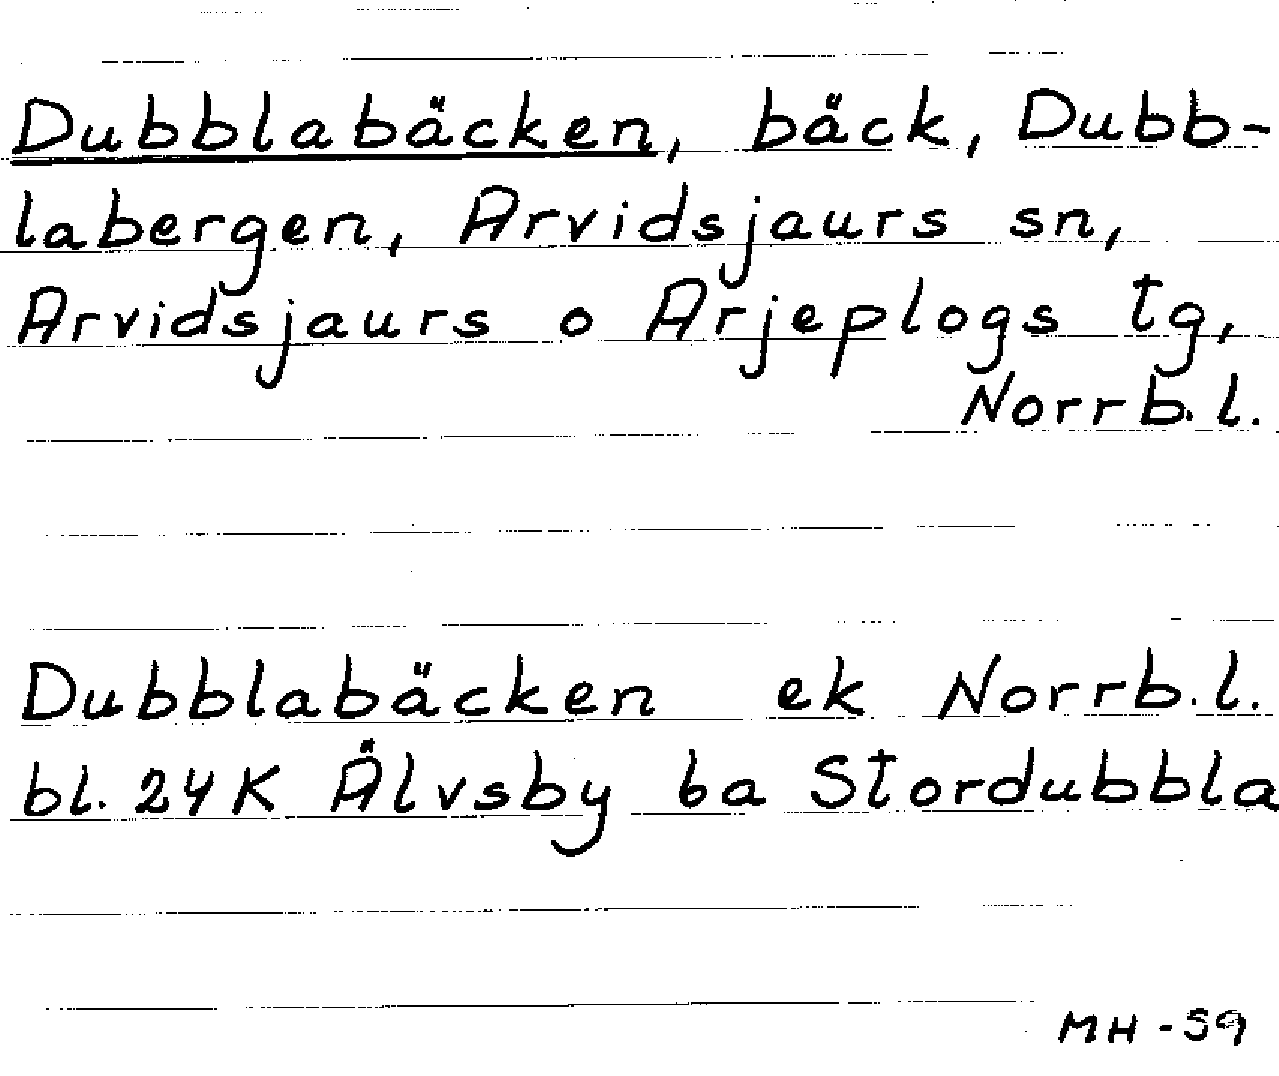 Dubblabäcken, bäck, Dubb-
labergen, Arvidsjaurs sn,
Arvidsjaurs o Arjeplogs tg,
Norrb.l.
Dubblabäcken ek Norrb.l.
bl. 24K Älvsby 6a Stordubbla
MH -59